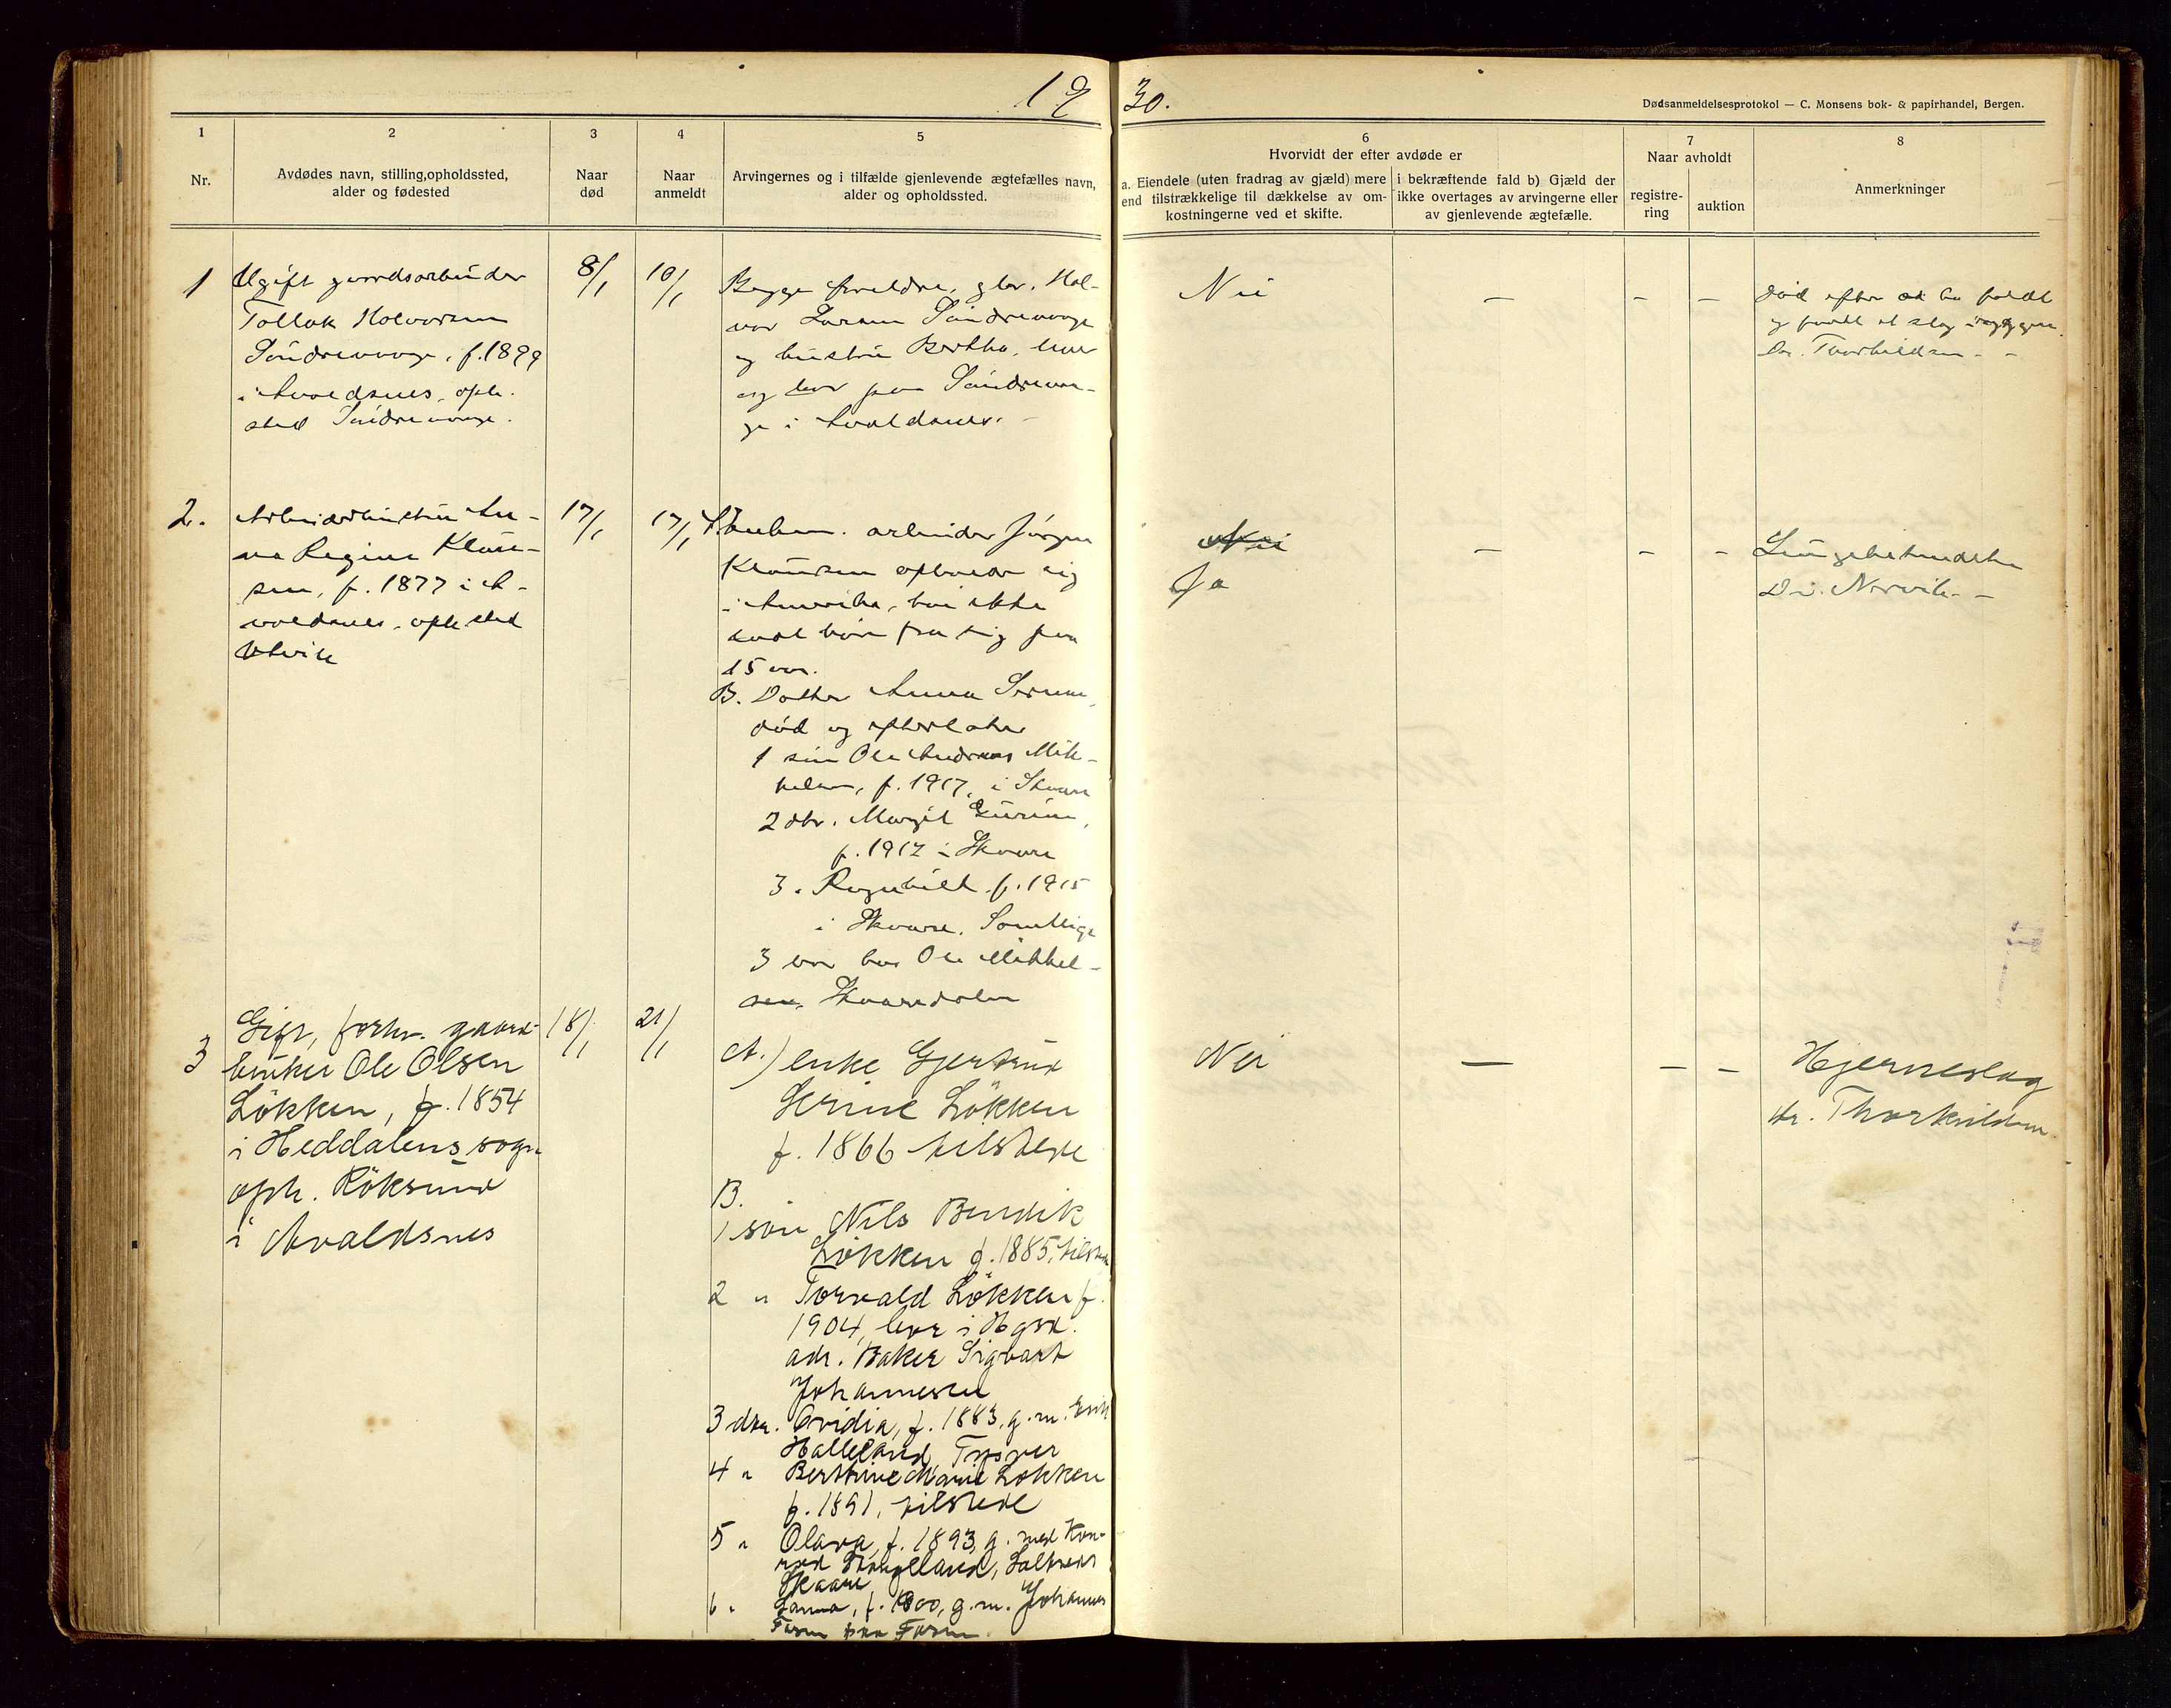 19 30.
Dødsanmeldelsesprotokol — C. Monsens bok- & papirhandel, Bergen.
1
Nr.
2
Avdødes navn, stilling, opholdssted,
alder og fødested
3
Naar
død
4
Naar
anmeldt
5
Arvingernes og i tilfælde gjenlevende ægtefælles navn,
alder og opholdssted.
6
Hvorvidt der efter avdøde er
a. Eiendele (uten fradrag av gjæld) mere
end tilstrækkelige til dækkelse av om-
kostningerne ved et skifte.
i bekræftende fald b) Gjæld der
ikke overtages av arvingerne eller
av gjenlevende ægtefælle.
7
Naar avholdt
registre-
ring
auktion
8
Anmerkninger
1
Ugift gaardsarbeider
Tollak Halvorsen
Søndrevaage, f. 1899
i Avaldsnes, oph.
sted Søndrevaage.
8/1
10/1
Begge foreldre, gbr. Hal-
vor Larsen Søndrevaage
og hustru Bertha, lever
og bor paa Søndrevaa-
ge i Avaldsnes. -
Nei
— – –
død efter at ha faldt
og faat et slag i ryggen.
Dr. Thorkildsen - -
2.
Arbeiderhustru An-
na Regine Klau-
sen, f. 1877 i A-
valdsnes, oph.sted
Utvik
17/1
17/1
A. Enkem. arbeider Jørgen
Klausen opholder sig
i Amerika, har ikke
latt høre fra sig paa
15 aar.
B. Datter Anna Serine,
død og efterlater
1 søn Ole Andreas Mik-
kelsen, f. 1917, i Skaare
2 dtr. Margit Gurine,
f. 1912 i Skaare
3. Ragnhild f. 1915
i Skaare. Samtlige
3 bor hos Ole Mikkel-
sen, Skaaredalen
Nei
Ja
— – –
Lungebetændelse
Dr. Norvik - -
3
Gift, forhv. gaard-
bruker Ole Olsen
Løkken, f. 1854
i Heddalens sogn
oph. Røksund
i Avaldsnes
18/1
21/1
A.) enke Gjertrud
Serine Løkken
f. 1866 tilstede
B.
1 søn Nils Bendik
Løkken f. 1885, tilstede
2 " Torvald Løkken f.
1904, bor i Hgsd.
adr. Baker Sigvart
Johannesen
3 dtr. Ovidia, f. 1883, g.m. Erik
Halleland, Tysvær
4 " Berthine Marie Løkken
f. 1891, tilstede
5 " Olava, f. 1893, g. med Kon-
rad Stangeland, Saltnes
Skaare
6 " Sanna, f. 1900, g.m. Johannes
Fosen paa Fosen.
Nei
— – –
Hjerneslag
dr. Thorkildsen